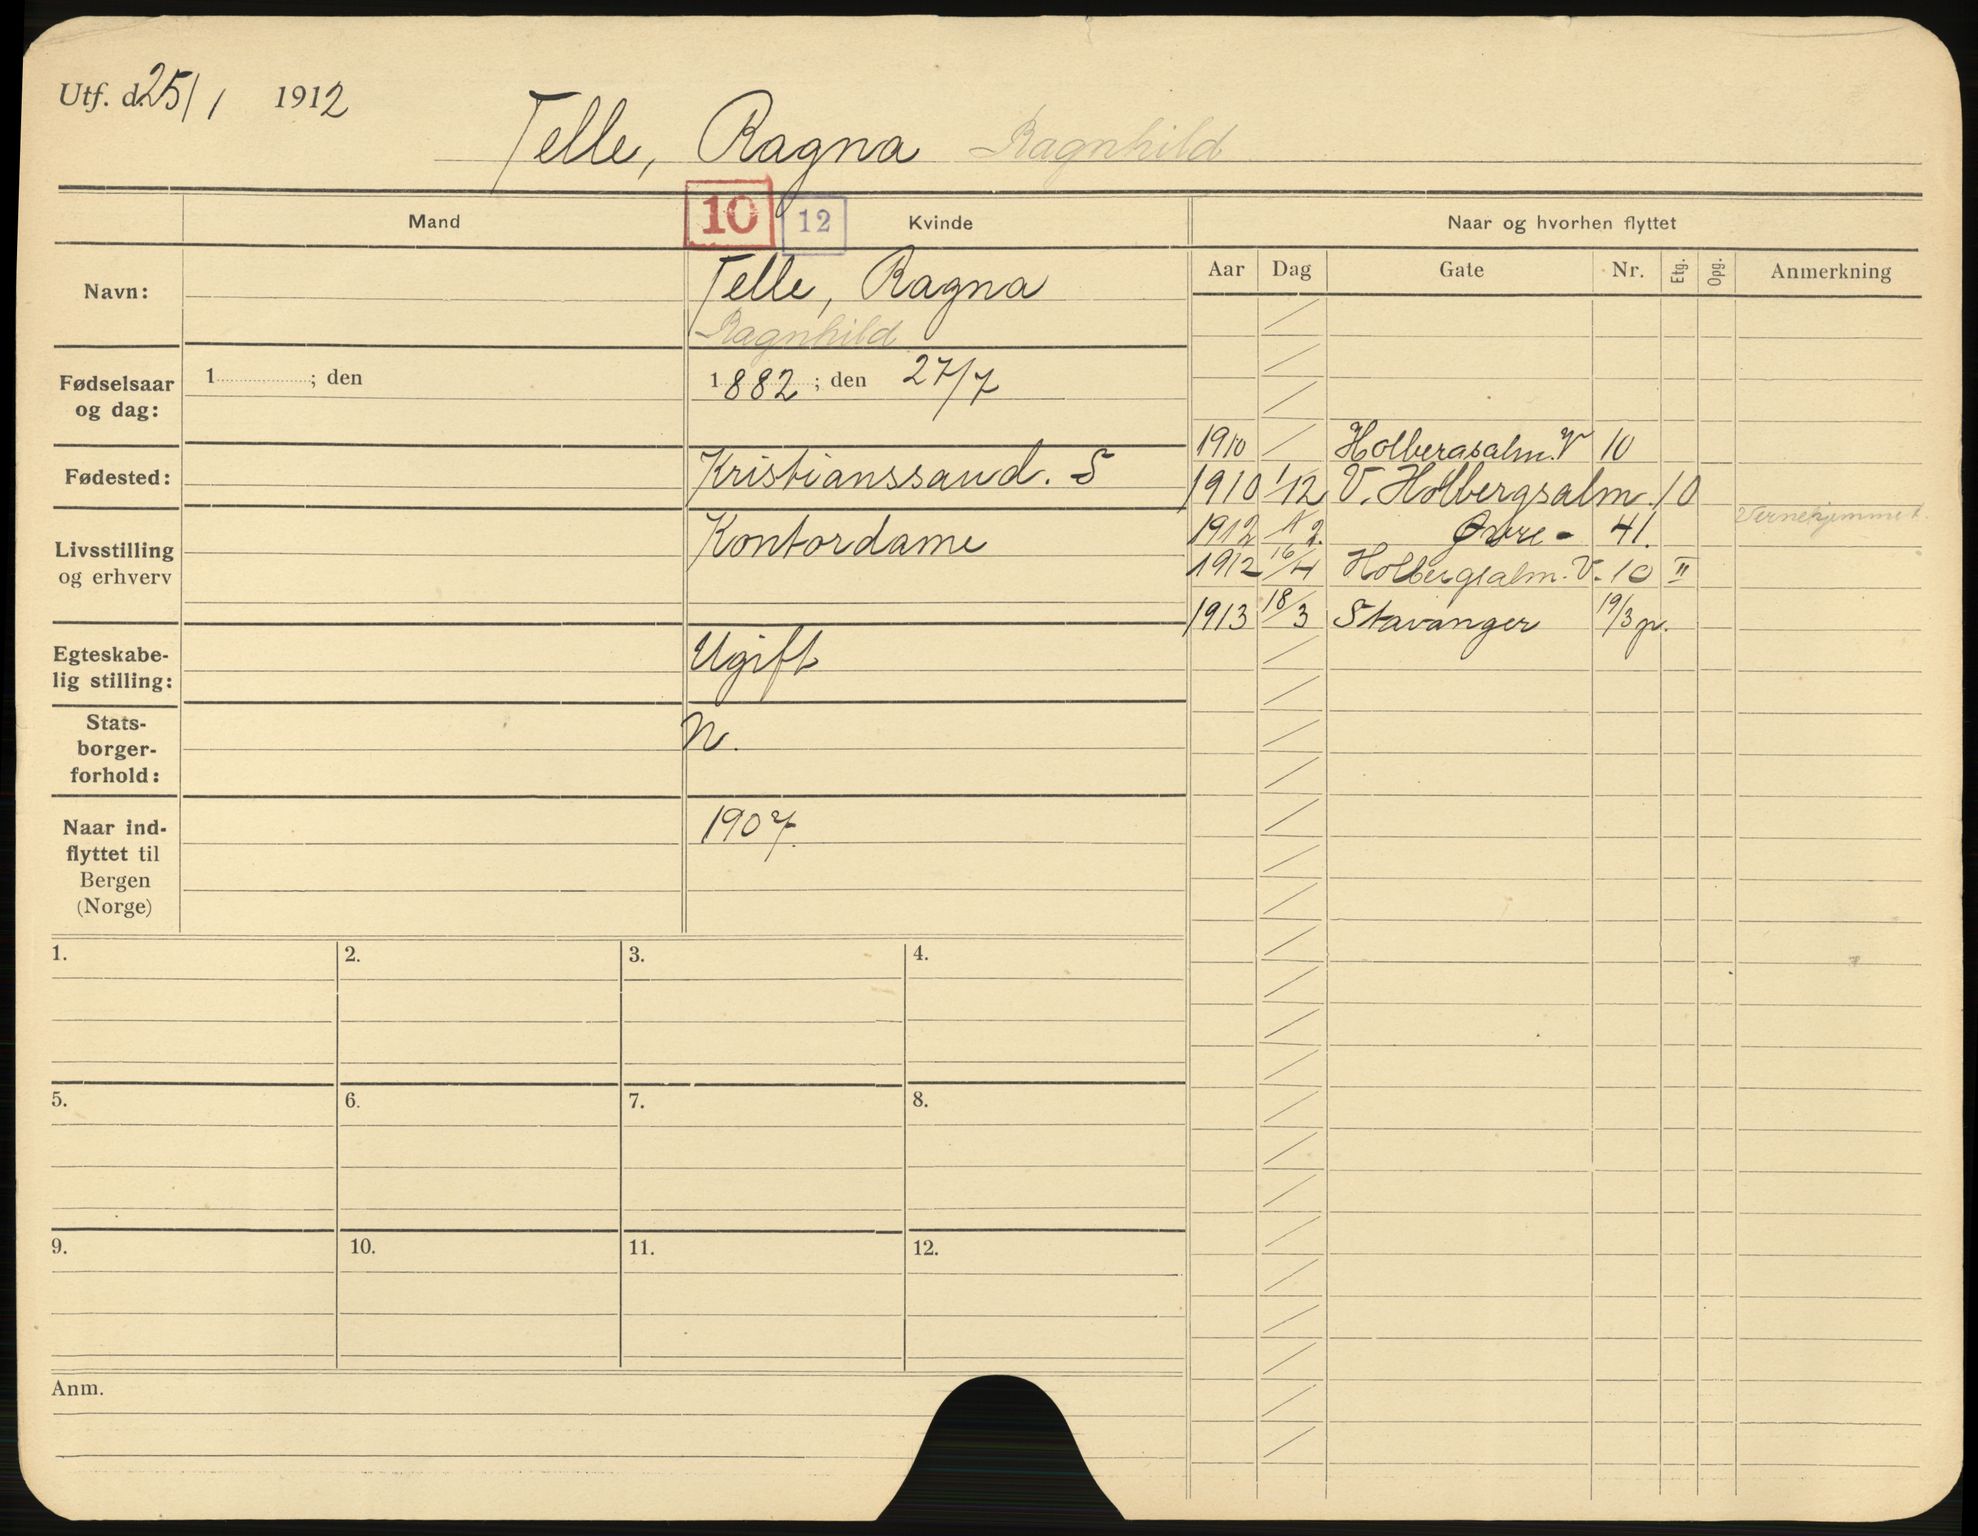 Utf. d. 25/1 1912
Telle, Ragna Ragnhild
Mand
10
12
Kvinde
Naar og hvorhen flyttet
Aar Dag Gate Nr. Etg. Opg. Anmerkning
Navn:
Telle, Ragna
Ragnhild
Fødselsaar
og dag:
1 ; den
1882 ; den 27/7
Fødested:
Kristianssand. S
Livsstilling
og erhverv
Kontordame
Egteskabe-
lig stilling:
Ugift
Stats-
borger-
forhold:
N.
Naar ind-
flyttet til
Bergen
(Norge)
1907.
1910 Holbergsalm. V 10
1910 1/12 V. Holbergsalm. 10
1912 1/2. Øvre - 41. Vernehjemmet
1912 16/4 Holbergsalm. V. 10 II
1913 18/3 Stavanger 19/3 p.
1. 2. 3. 4.
5. 6. 7. 8.
9. 10. 11. 12.
Anm.